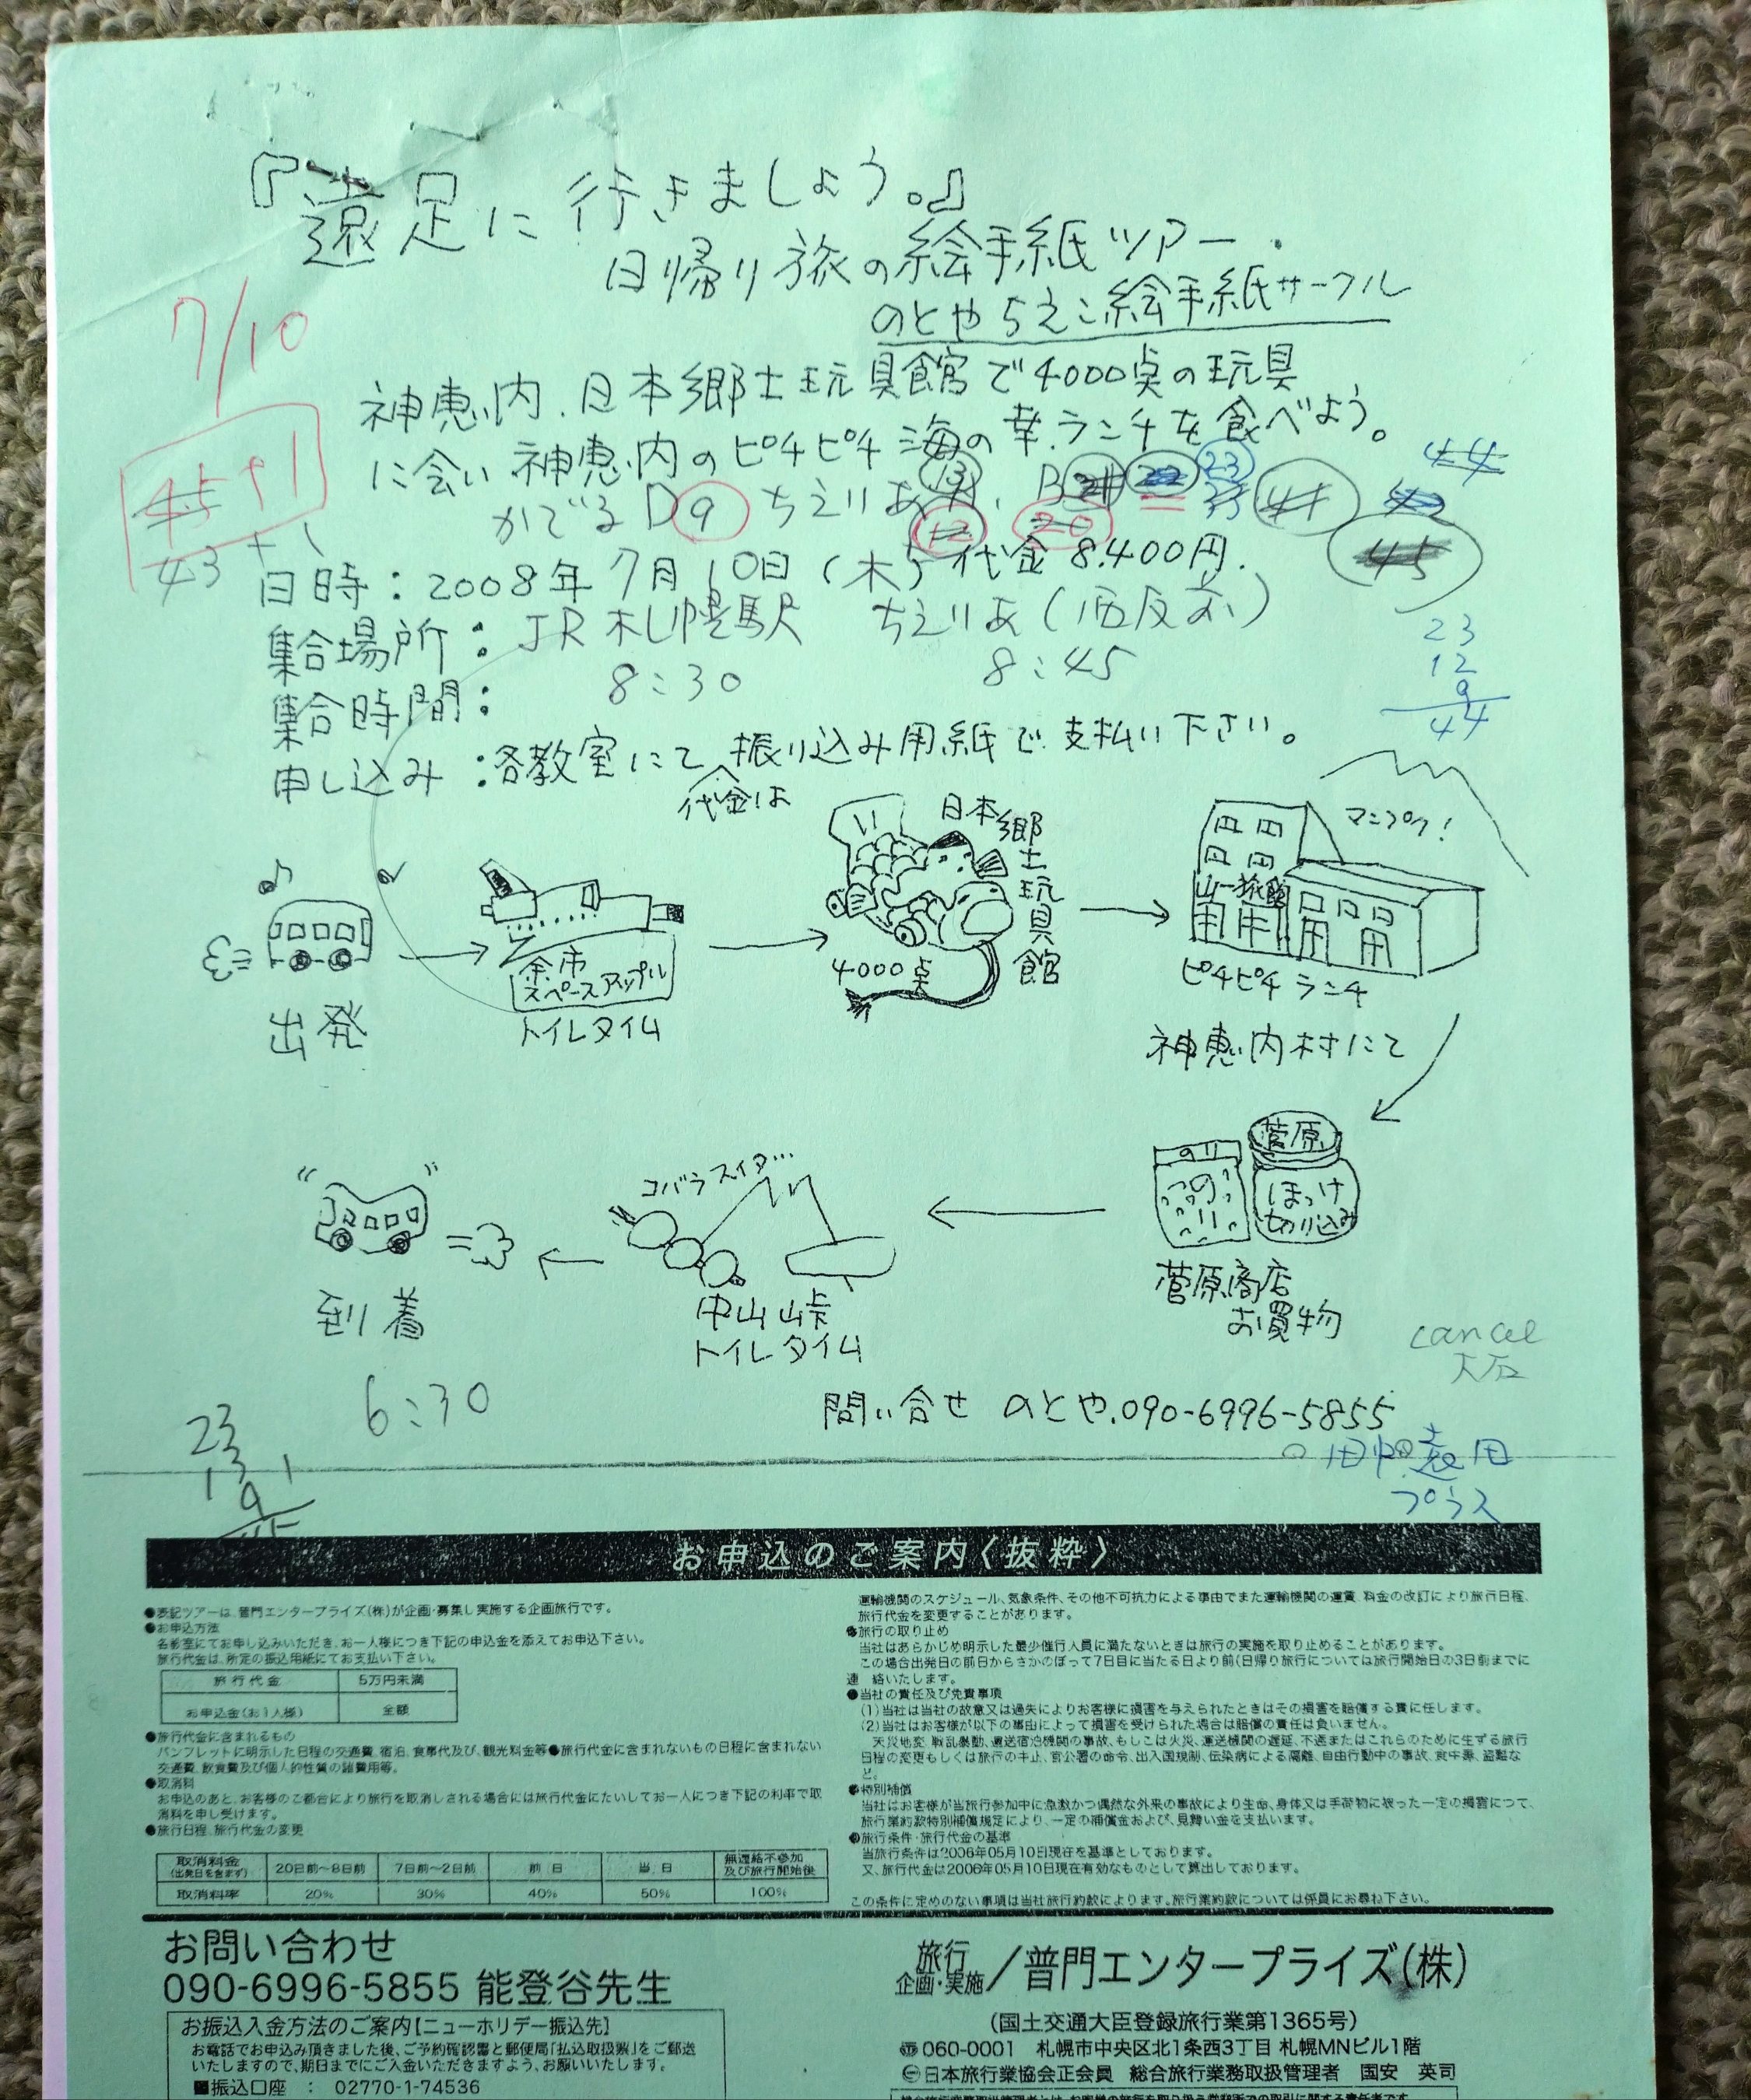 『遠足に行きましょう。』
日帰り旅の絵手紙ツアー.
のとやちえこ絵手紙サークル
7/10
神恵内、日本郷土玩具館で4000点の玩具
に会い神恵内のピチピチ海の幸ランチを食べよう。
44
かでる D 9 ちえりあ 13 B 23
45+1
12 20
43+1
45
日時：2008年7月10日(木) 代金8.400円.
集合場所： JR札幌駅 ちえりあ
集合時間： 8:30 8:45
23
12
9
44
申し込み：各教室にて 振り込み用紙で支払い下さい。
代金は
日本郷土玩具館
マンプク!
山一旅館
余市
スペースアップル
4000点
ピチピチランチ
出発
トイレタイム
神恵内村にて
コバラスイタ…
菅原
のり
ほっけ
切り込み
菅原商店
お買物
到着
中山峠
トイレタイム
cancel
6:30
問い合せ のとや.090-6996-5855
23
13
9
プラス
お申込のご案内〈抜粋〉
●表記ツアーは、普門エンタープライズ(株)が企画・募集し実施する企画旅行です。
●お申込方法
各教室にてお申し込みいただき、お一人様につき下記の申込金を添えてお申込下さい。
旅行代金は、所定の振込用紙にてお支払い下さい。
旅行代金 5万円未満
お申込金(お1人様) 全額
●旅行代金に含まれるもの
パンフレットに明示した日程の交通費、宿泊、食事代及び、観光料金等●旅行代金に含まれないもの日程に含まれない
交通費、飲食費及び個人的性質の諸費用等。
●取消料
お申込のあと、お客様のご都合により旅行を取消しされる場合には旅行代金にたいしてお一人につき下記の利率で取
消料を申し受けます。
●旅行日程、旅行代金の変更
取消料金(出発日を含まず) 20日前～8日前 7日前～2日前 前日 当日 無連絡不参加及び旅行開始後
取消料率 20% 30% 40% 50% 100%
運輸機関のスケジュール、気象条件、その他不可抗力による事由でまた運輸機関の運賃、料金の改訂により旅行日程、
旅行代金を変更することがあります。
●旅行の取り止め
当社はあらかじめ明示した最少催行人員に満たないときは旅行の実施を取り止めることがあります。
この場合出発日の前日からさかのぼって7日目に当たる日より前(日帰り旅行については旅行開始日の3日前までに
連 絡いたします。
●当社の責任及び免責事項
(1)当社は当社の故意又は過失によりお客様に損害を与えられたときはその損害を賠償する責に任します。
(2)当社はお客様が以下の事由によって損害を受けられた場合は賠償の責任は負いません。
天災地変、戦乱暴動、運送宿泊機関の事故、もしこは火災、運送機関の遅延、不通またはこれらのために生ずる旅行
日程の変更もしくは旅行の中止、官公署の命令、出入国規制、伝染病による隔離、自由行動中の事故、食中毒、盗難な
ど。
●特別補償
当社はお客様が当旅行参加中に急激かつ偶然な外来の事故により生命、身体又は手荷物に被った一定の損害につて、
旅行業約款特別補償規定により、一定の補償金および、見舞い金を支払います。
●旅行条件・旅行代金の基準
当旅行条件は2006年05月10日現在を基準としております。
又、旅行代金は2006年05月10日現在有効なものとして算出しております。
この条件に定めのない事項は当社旅行約款によります。旅行業約款については係員にお尋ね下さい。
お問い合わせ
090-6996-5855 能登谷先生
お振込入金方法のご案内【ニューホリデー振込先】
お電話でお申込み頂きました後、ご予約確認書と郵便局「払込取扱票」をご郵送
いたしますので、期日までにご入金いただきますよう、お願いいたします。
■振込口座 ： 02770-1-74536
旅行企画・実施／普門エンタープライズ(株)
(国土交通大臣登録旅行業第1365号)
〒060-0001 札幌市中央区北1条西3丁目 札幌MNビル1階
日本旅行業協会正会員 総合旅行業務取扱管理者 国安 英司